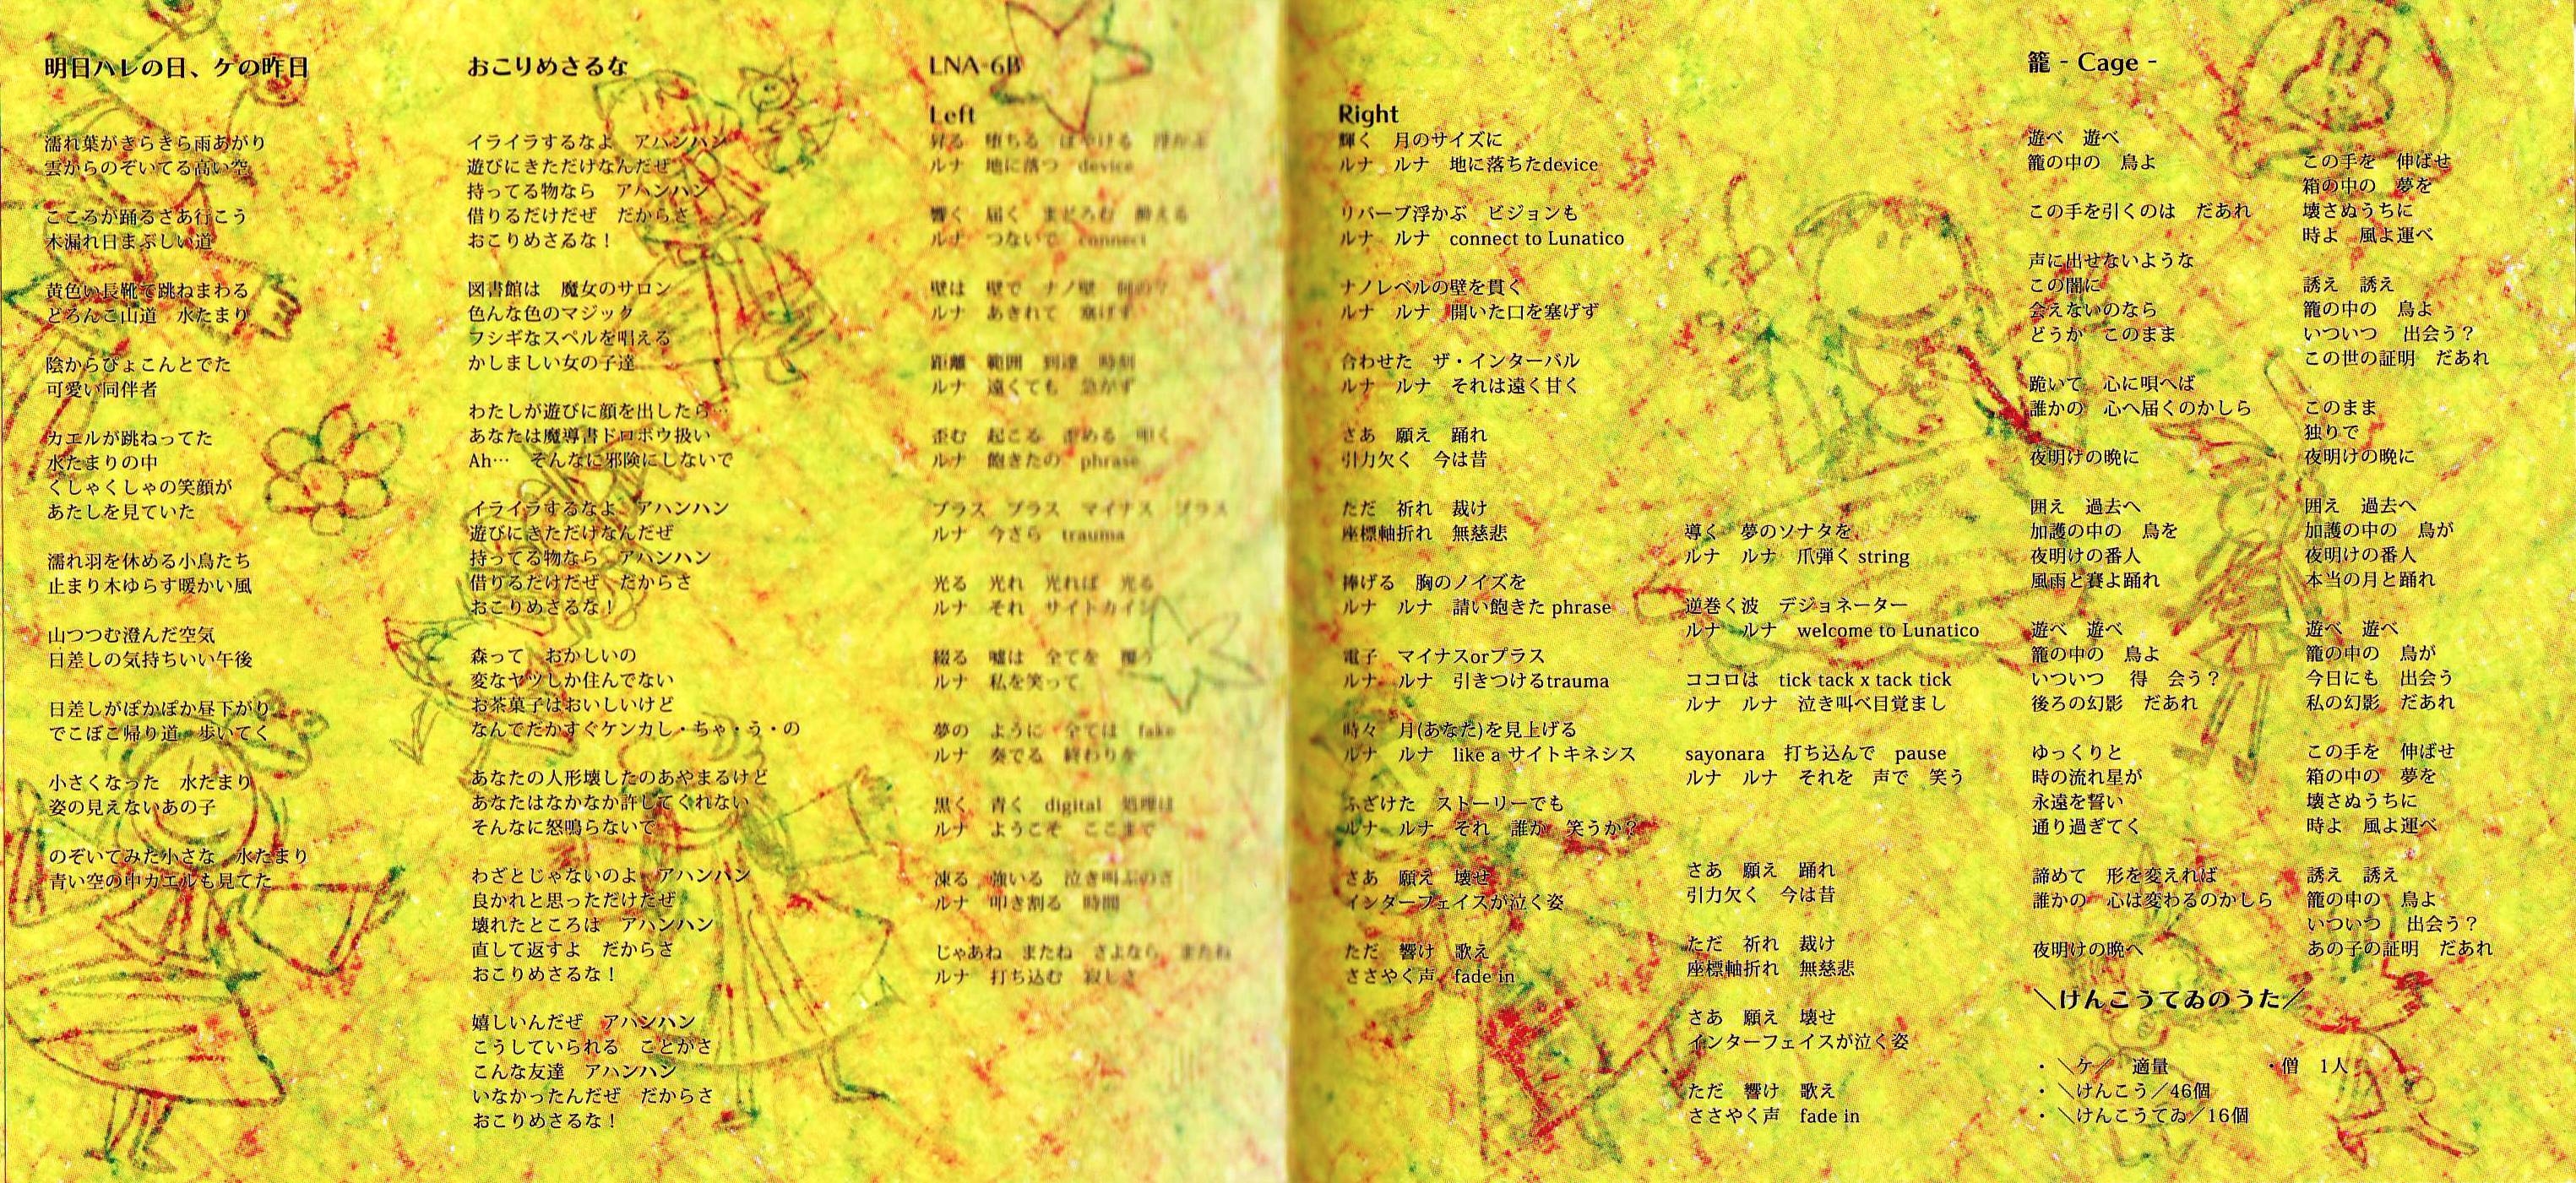 明日ハレの日、ケの昨日
濡れ葉がきらきら雨あがり
雲からのぞいてる高い空
こころが踊るさあ行こう
木漏れ日まぶしい道
黄色い長靴で跳ねまわる
どろんこ山道　水たまり
陰からぴょこんとでた
可愛い同伴者
カエルが跳ねってた
水たまりの中
くしゃくしゃの笑顔が
あたしを見ていた
濡れ羽を休める小鳥たち
止まり木ゆらす暖かい風
山つつむ澄んだ空気
日差しの気持ちいい午後
日差しがぽかぽか昼下がり
でこぼこ帰り道　歩いてく
小さくなった　水たまり
姿の見えないあの子
のぞいてみた小さな　水たまり
青い空の中カエルも見てた
おこりめさるな
イライラするなよ　アハンハン
遊びにきただけなんだぜ
持ってる物なら　アハンハン
借りるだけだぜ　だからさ
おこりめさるな！
図書館は　魔女のサロン
色んな色のマジック
フシギなスペルを唱える
かしましい女の子達
わたしが遊びに顔を出したら…
あなたは魔導書ドロボウ扱い
Ah…　そんなに邪険にしないで
イライラするなよ　アハンハン
遊びにきただけなんだぜ
持ってる物なら　アハンハン
借りるだけだぜ　だからさ
おこりめさるな！
森って　おかしいの
変なヤツしか住んでない
お茶菓子はおいしいけど
なんでだかすぐケンカし・ちゃ・う・の
あなたの人形壊したのあやまるけど
あなたはなかなか許してくれない
そんなに怒鳴らないで
わざとじゃないのよ　アハンハン
良かれと思っただけだぜ
壊れたところは　アハンハン
直して返すよ　だからさ
おこりめさるな！
嬉しいんだぜ　アハンハン
こうしていられる　ことがさ
こんな友達　アハンハン
いなかったんだぜ　だからさ
おこりめさるな！
LNA-6B
Left
昇る　堕ちる　ぼやける　浮かぶ
ルナ　地に落つ　device
響く　届く　まどろむ
ルナ　つないで　connect
壁は　壁で　ナノ壁
ルナ　あきれて　塞げず
距離　範囲　到達　時刻
ルナ　遠くても　急かず
歪む　起こる　歪める　叩く
ルナ　飽きたの　phrase
プラス　プラス　マイナス　プラス
ルナ　今さら　trauma
光る　光れ　光れば　光る
ルナ　それ　サイトカイン
綴る　嘘は　全てを　覆う
ルナ　私を笑って
夢の　ように　全ては　fake
ルナ　奏でる　終わりを
黒く　青く　digital　処理は
ルナ　ようこそ　ここまで
凍る　強いる　泣き叫ぶのさ
ルナ　叩き割る　時間
じゃあね　またね　さよなら　またね
ルナ　打ち込む　寂しさ
Right
輝く　月のサイズに
ルナ　ルナ　地に落ちたdevice
リバーブ浮かぶ　ビジョンも
ルナ　ルナ　connect to Lunatico
ナノレベルの壁を貫く
ルナ　ルナ　開いた口を塞げず
合わせた　ザ・インターバル
ルナ　ルナ　それは遠く甘く
さあ　願え　踊れ
引力欠く　今は昔
ただ　祈れ　裁け
座標軸折れ　無慈悲
捧げる　胸のノイズを
ルナ　ルナ　請い飽きた phrase
電子　マイナスorプラス
ルナ　ルナ　引きつけるtrauma
時々　月(あなた)を見上げる
ルナ　ルナ　like a サイトキネシス
ふざけた　ストーリーでも
ルナ　ルナ　それ　誰か　笑うか？
さあ　願え　壊せ
インターフェイスが泣く姿
ただ　響け　歌え
ささやく声　fade in
導く　夢のソナタを
ルナ　ルナ　爪弾く string
逆巻く波　デジョネーター
ルナ　ルナ　welcome to Lunatico
ココロは　tick tack x tack tick
ルナ　ルナ　泣き叫べ目覚まし
sayonara　打ち込んで　pause
ルナ　ルナ　それを　声で　笑う
さあ　願え　踊れ
引力欠く　今は昔
ただ　祈れ　裁け
座標軸折れ　無慈悲
さあ　願え　壊せ
インターフェイスが泣く姿
ただ　響け　歌え
ささやく声　fade in
籠 - Cage -
遊べ　遊べ
籠の中の　鳥よ
この手を引くのは　だあれ
声に出せないような
この闇に
会えないのなら
どうか　このまま
跪いて　心に唄へば
誰かの　心へ届くのかしら
夜明けの晩に
囲え　過去へ
加護の中の　鳥を
夜明けの番人
風雨と賽よ踊れ
遊べ　遊べ
籠の中の　鳥よ
いついつ　得　会う？
後ろの幻影　だあれ
ゆっくりと
時の流れ星が
永遠を誓い
通り過ぎてく
諦めて　形を変えれば
誰かの　心は変わるのかしら
夜明けの晩へ
この手を　伸ばせ
箱の中の　夢を
壊さぬうちに
時よ　風よ運べ
誘え　誘え
籠の中の　鳥よ
いついつ　出会う？
この世の証明　だあれ
このまま
独りで
夜明けの晩に
囲え　過去へ
加護の中の　鳥が
夜明けの番人
本当の月と踊れ
遊べ　遊べ
籠の中の　鳥が
今日にも　出会う
私の幻影　だあれ
この手を　伸ばせ
箱の中の　夢を
壊さぬうちに
時よ　風よ運べ
誘え　誘え
籠の中の　鳥よ
いついつ　出会う？
あの子の証明　だあれ
＼けんこうてゐのうた／
・＼ケ／　適量
・僧　1人
・＼けんこう／46個
・＼けんこうてゐ／16個